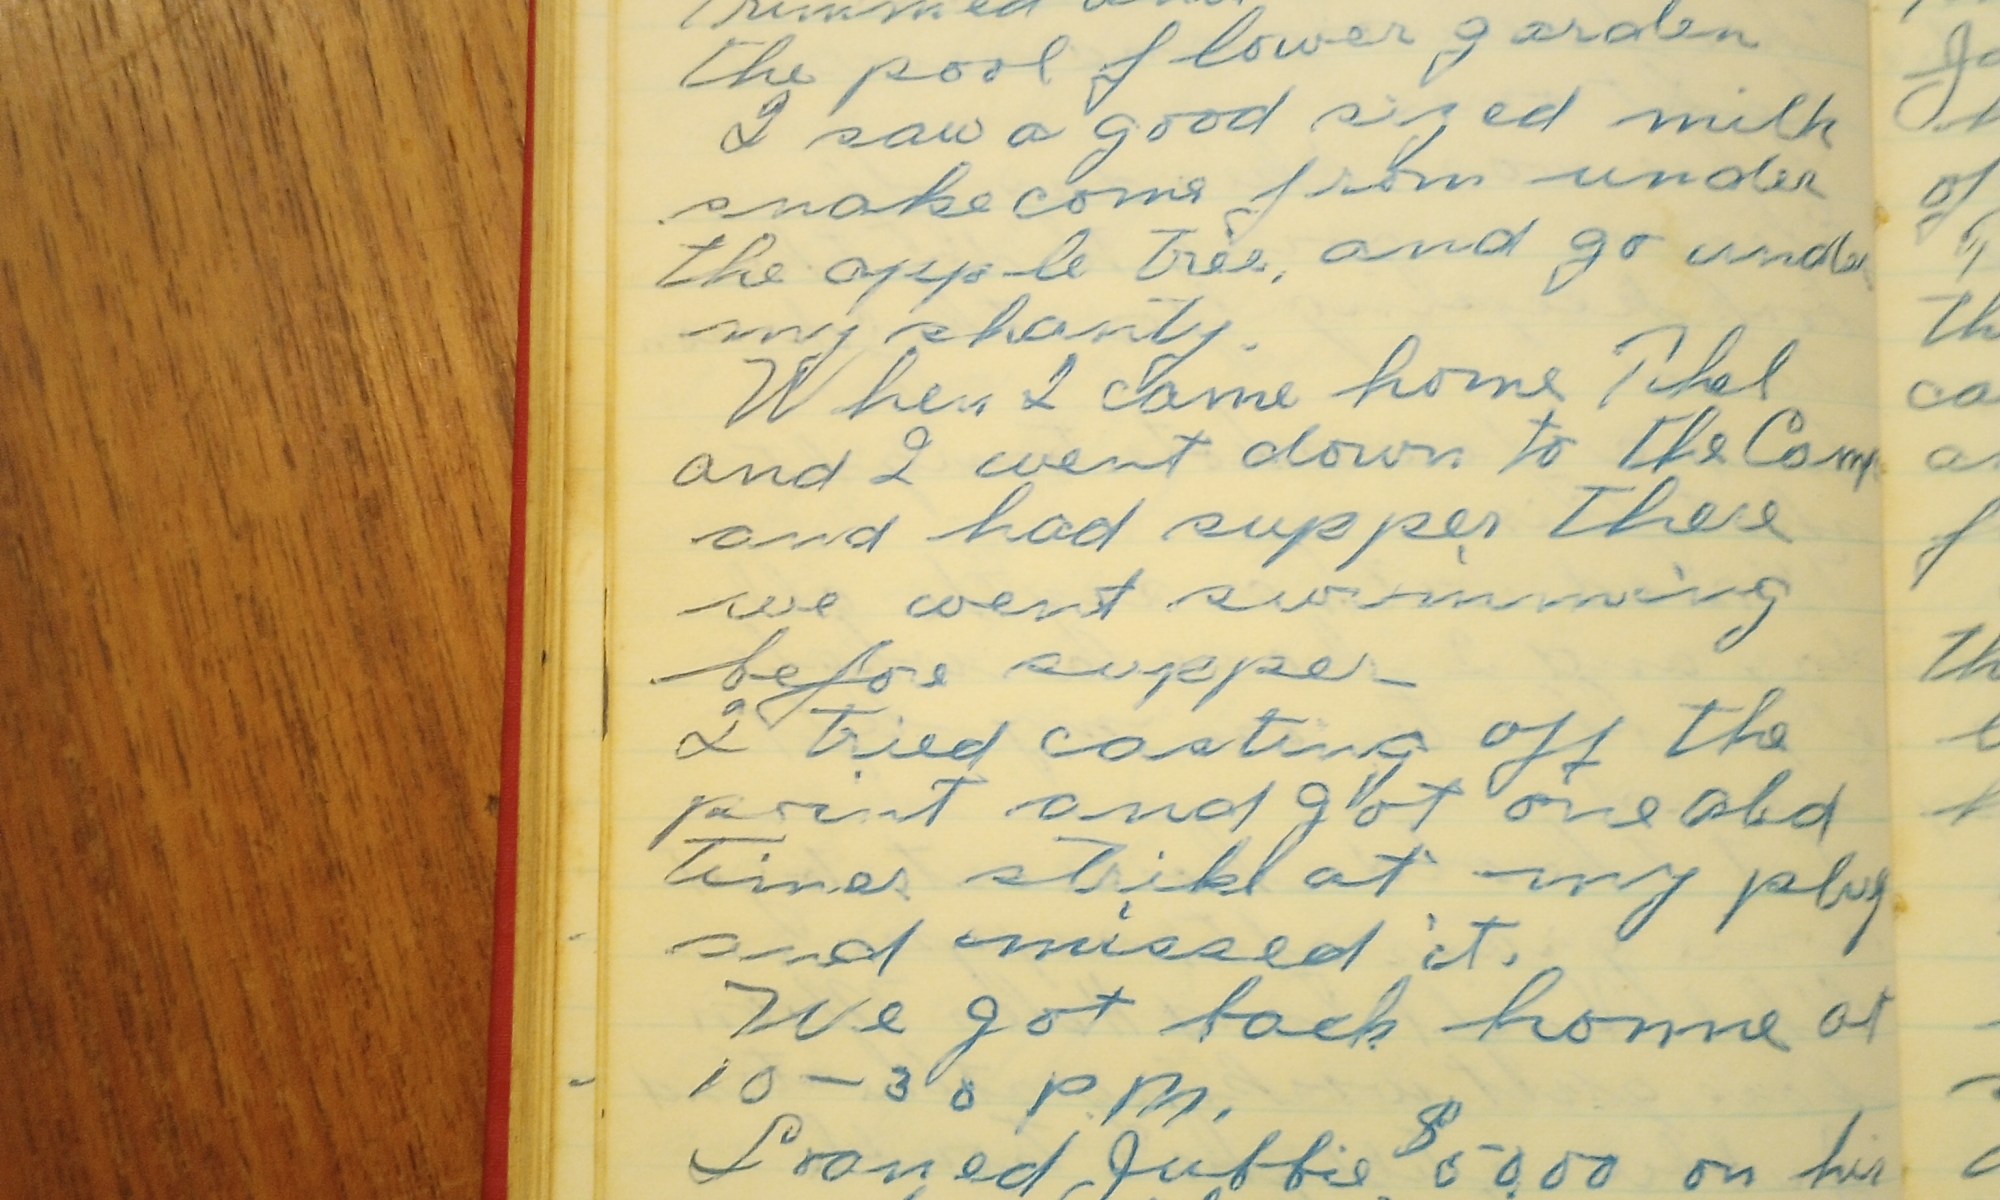 Trimmed and
the pool flower garden
I saw a good sized milk
snake come from under
the apple tree, and go under
my shanty.
When I came home
and I went down to the Camp
and had supper there
we went swimming
before supper
I tried casting off the
point and got one
times strike at my plug
and missed it.
We got back home at
10-30 PM.
Loaned Jubbie $50.00 on his